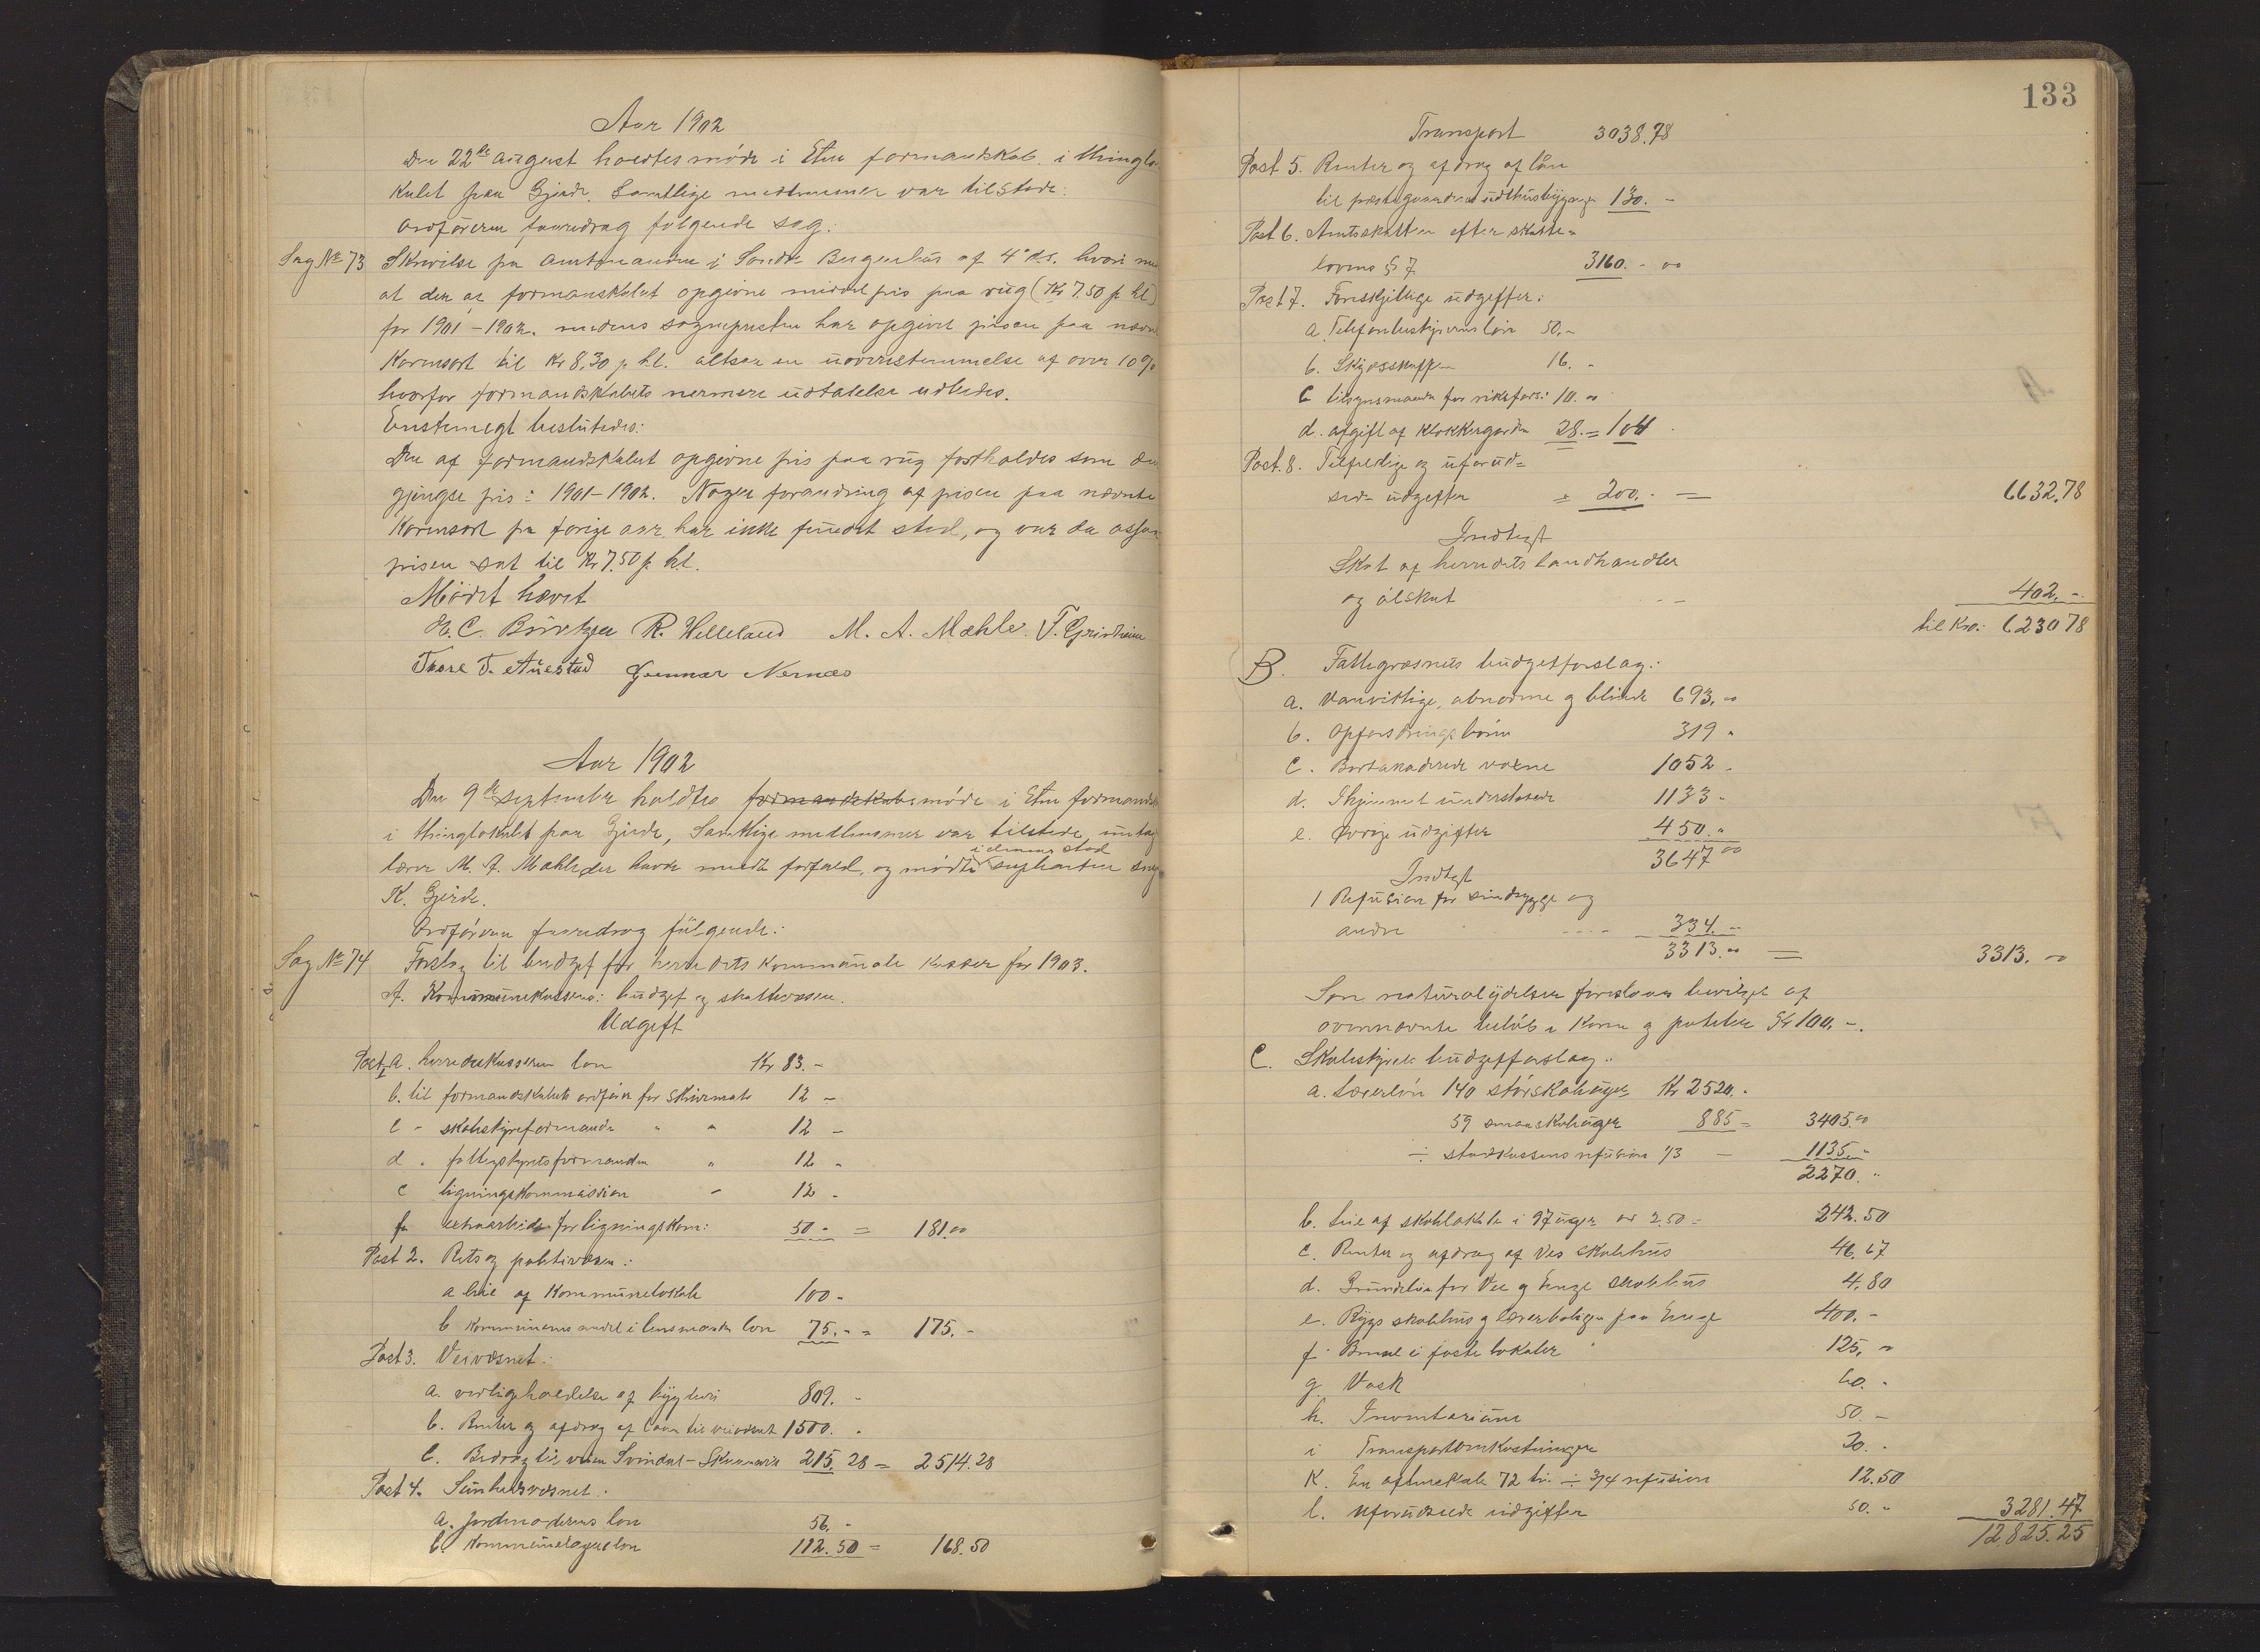 Aar 1902
Den 22de august holdtes møde i Etne formandskab i thinglo-
kalet paa Gjerde. Samtlige medlemmer var tilstede.
Ordføreren foredrag følgende sag:
Sag No 73 Skrivelse fra amtmanden i Søndre Bergenhus af 4 ds. hvori
at den af formanskabet opgivne middelpris paa rug (Kr 7.50 p hl)
for 1901-1902. medens sognepresten har opgivet prisen paa
Kornsort til Kr 8,30 p. hl. altsaa en uoverrestemmelse af over 10 %
hvorfor formandskabets nermere udtalelse udbedes.
Enstemegt beslutedes:
Den af formandskabet opgivne pris paa rug fastholdes som den
gjengse pris: 1901-1902. Nogen forandring af prisen paa nævnte
Kornsort fra forige aar har ikke fundet sted, og var da ogsaa
prisen sat til Kr 7.50 p. hl.
Mødet hævet
H. C. R. Helleland M. A. Mæhle. T. Grindheim
Tore T. Auestad Gunnar Nernæs
Aar 1902
Den 9de september holdtes formandskabsmøde i Etne
i thinglokalet paa Gjerde, Samtlige medlemmer var tilstede, undtag
lærer M. A. Mæhle der havde meldt forfald, og mødte suplianten
i dennes sted
K. Gjerde.
Ordføreren foredrag følgende:
Sag No 74 Forslag til budget for herredets Kommunale Kasser for 1903.
A. Kommunekassens: budget og skattevæsen.
Udgift
Post 1 a. herredskassereren løn Kr 83.-
b. til formandskabets ordfører for Skrivmate 12 -
c " skolestyreformande " " 12 -
d " fattigstyretsformanden " 12 -
e ligningskommision " 12 -
f extraarbeide for ligningskom: 50 - = 181.00
Post 2. Rets og politivæsen:
a leie af Kommunelokale 100 -
b Kommunens andel i lensmands løn 75. - = 175. -
Post 3. Veivæsnet:
a. vedligeholdelse af bygdevei 809. -
b. Renter og afdrag af laan til veivæsnet 1500. -
c. Bidrag til veien Svindal - 215. 28 = 2514.28
Post 4. Sunhedsvæsnet:
a. Jordmoderens løn 56. -
b. Kommunelægens løn 112.50 = 168.50
133
Transport 3038.78
Post 5. Renter og afdrag af lån
til præstegaardens udhusbygninger 130. -
Post 6. Amtsskatten efter skatte-
lovens § 7 3160. - 00
Post 7. Forskjellige udgifter:
a. Telefonbestyrerens løn 50. -
b. Skydsskaffen 16. -
c tilsynsmande for riksfors: 10. 00
d. afgift af Klokkergarden 28. = 104
Post. 8. Tilfeldige og uforud-
sede udgifter = 200. - 6632.78
Indtegt
Skat af herredets landhandler
og ølskat 402. -
til Kro: 6230 78
B. Fattigvæsnets budgetforslag:
a. Vanvittige, abnorme og blinde 693. 00
b. Opfostringsbørn 319 "
c. Bortakorderede voxne 1052 -
d. Ihjemmet understøtede 1133 -
e. Øvrige udgifter 450. "
3647 00
Indtegt
1 Refusion for sindsyge og
andre 334. -
3313. 00 = 3313. 00
Som naturalydelser foreslaaes bevilget af
ovennævnte beløb i Korn og poteter Kr 100. -.
C. Skolestyrets budgetforslag:
a. Lærerløn 140 storskoleuger Kr 2520. -
59 smaaskoleuger 885 = 3405.00
÷ statskassens refusion 1/3 - 1135. -
2270. "
b. Leie af skolelokale i 97 uger a 2.50 = 242.50
c. Renter og afdrag af Vis skolehus 46.67
d. Grundleie for Vee og Enge skolehus 4,80
e. Rygs skolehus og lærerboligen paa Enge 400. -
f. Brensel i faste lokaler 125. 00
g. Vask 60. -
h. Inventarium 50. -
i Transportomkostninger 20. -
K. En aftenskole 72 ti. ÷ 3/4 refusion 12.50
l. Uforudseede udgifter 50. - 3281.47
12825.25